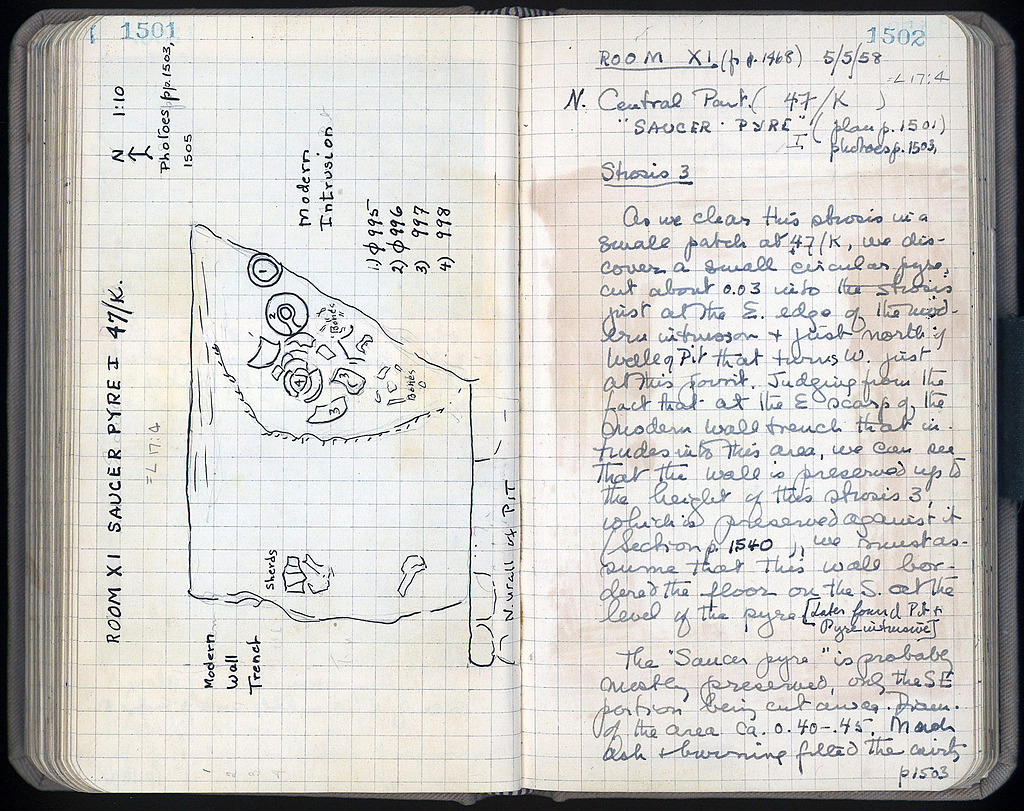 1501
ROOM XI SAUCER PYRE I 47/K.
= L 17:4
N 1:10
Photoes pp. 1503,
1505
Modern
Intrusion
1) φ 995
2) φ 996
3) 997
4) 998
1
2
Bones
4
3
3
Bones
Sherds
Modern
Wall
Trench
N. wall of PIT
1502
ROOM XI, (fr p. 1468) 5/5/58
= L 17:4
N. Central Part. ( 47/K )
"SAUCER PYRE" I ( plan p. 1501)
photoes p. 1503,
Strosis 3
As we clear this strosis in a
small patch at 47/K, we dis-
cover a small circular pyre,
cut about 0.03 into the strosis
just at the E. edge of the mod-
ern intrusion + just north of
Wall of Pit that turns W. just
at this point. Judging from the
fact that at the E scarp of the
modern wall trench that in-
trudes into this area, we can see
that the wall is preserved up to
the height of this strosis 3,
which is preserved against it
(Section p. 1540 ), we must as-
sume that this wall bor-
dered the floor on the S. at the
level of the pyre. [Later found Pit +
Pyre intrusive]
The "Saucer pyre" is probably
mostly preserved, only the SE
portion being cut away. Diam.
of the area ca. 0.40-.45. Much
ash + burning filled the cavity
p1503